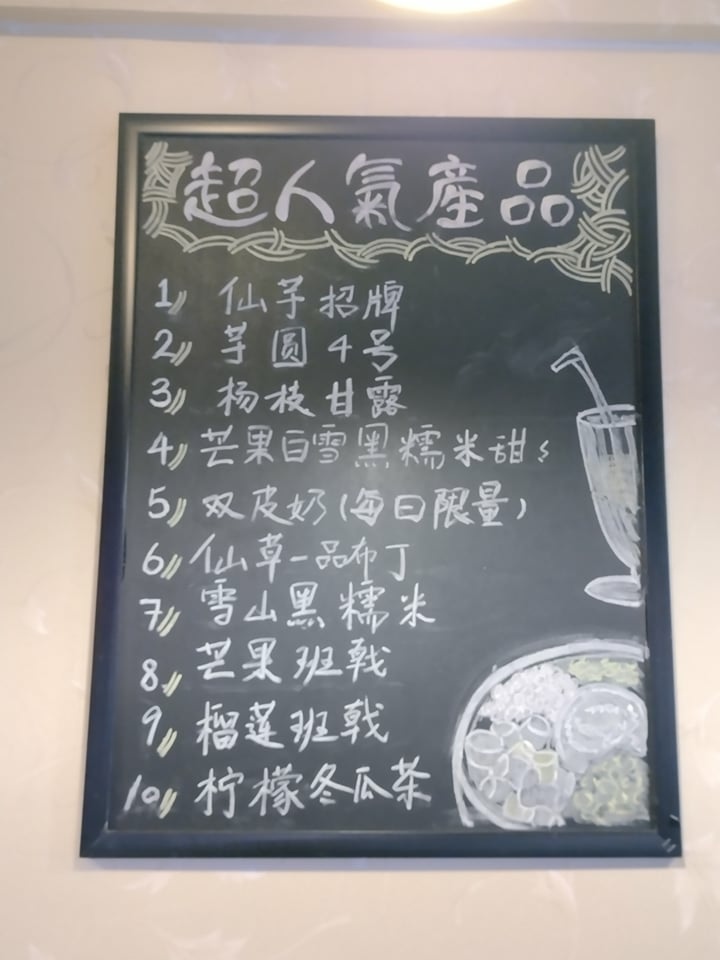 超人氣產品
1 仙芋招牌
2 芋圆4号
3 杨枝甘露
4 芒果白雪黑糯米甜
5 双皮奶(每日限量)
6 仙草一品布丁
7 雪山黑糯米
8 芒果班戟
9 榴莲班戟
10 柠檬冬瓜茶